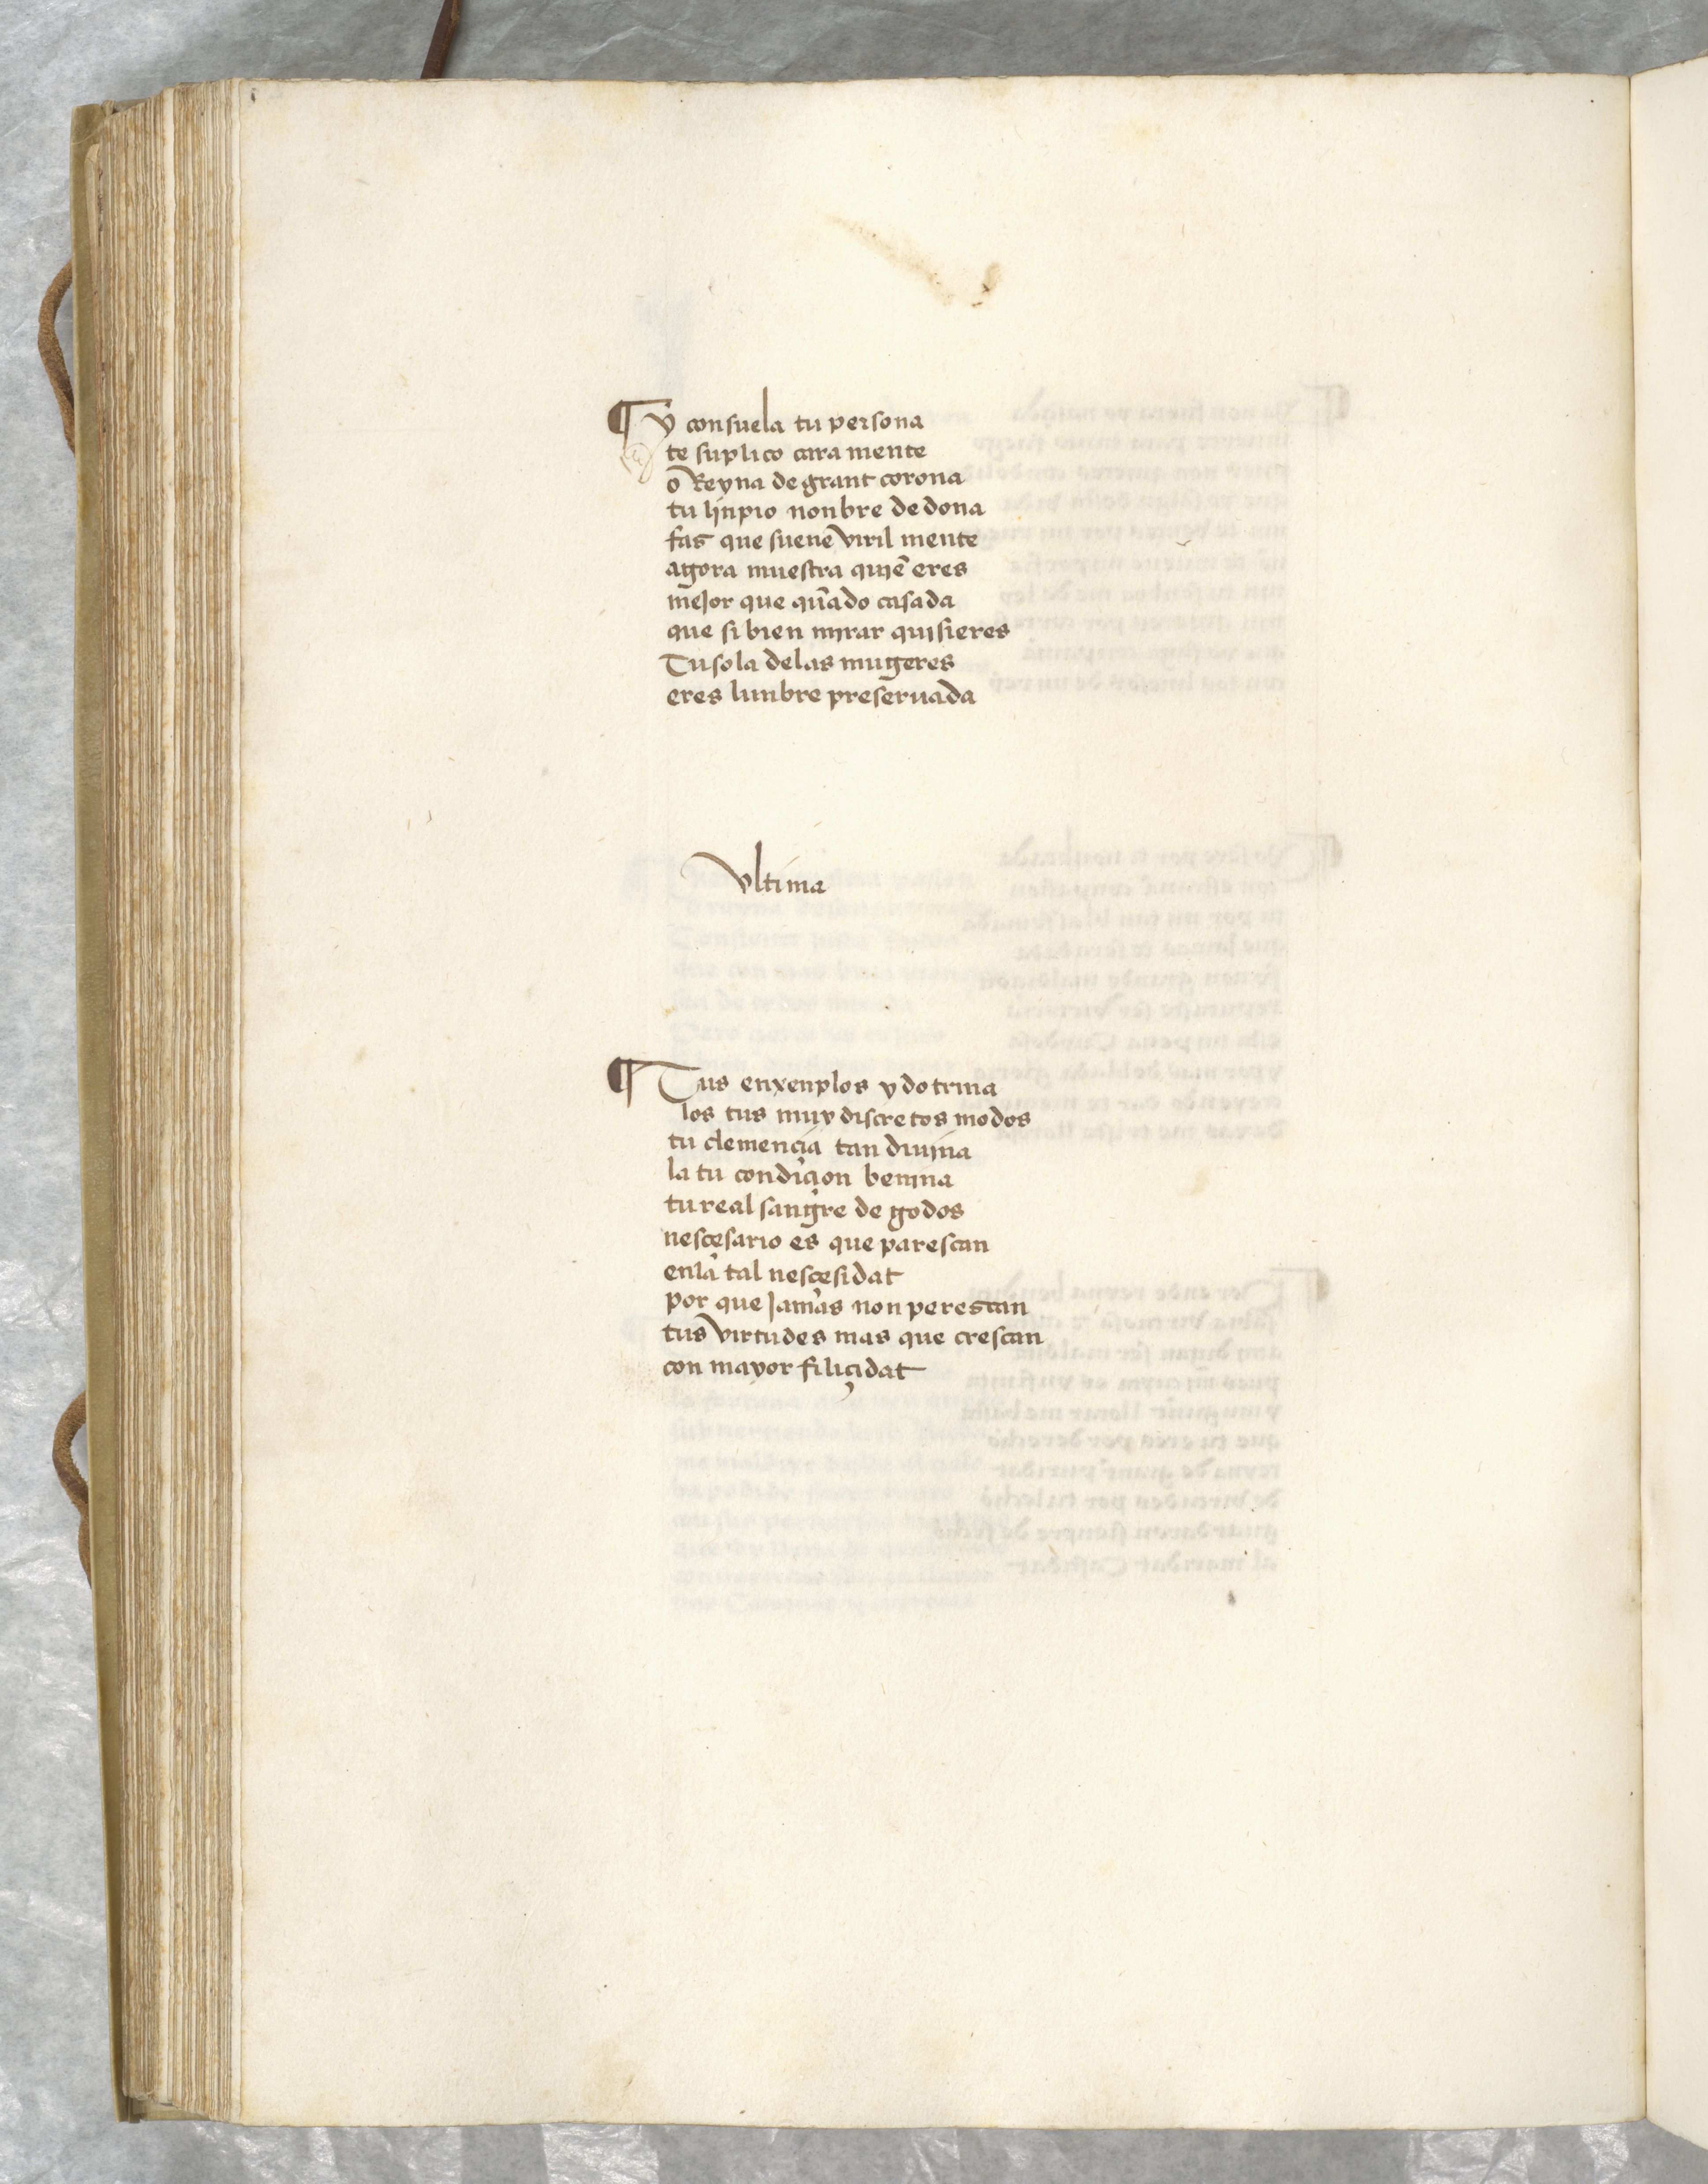 ¶ Y consuela tu persona
te suplico cara mente
o Reyna de grant corona
tu linpio nonbre de dona
fas que suenẽ viril mente
agora muestra quiẽ eres
mejor que qũado casada
que si bien mirar quisieres
Tu sola delas mugeres
eres lunbre preseruada
Vltima
¶ Tus enxenplos y dotrina
los tus muy discretos modos
tu clemencia tan diuina
la tu condiçion benina
tu real sangre de godos
nescesario es que parescan
enla tal nescesidat
por que Jamas non perescan
tus virtudes mas que crescan
con mayor filiçidat